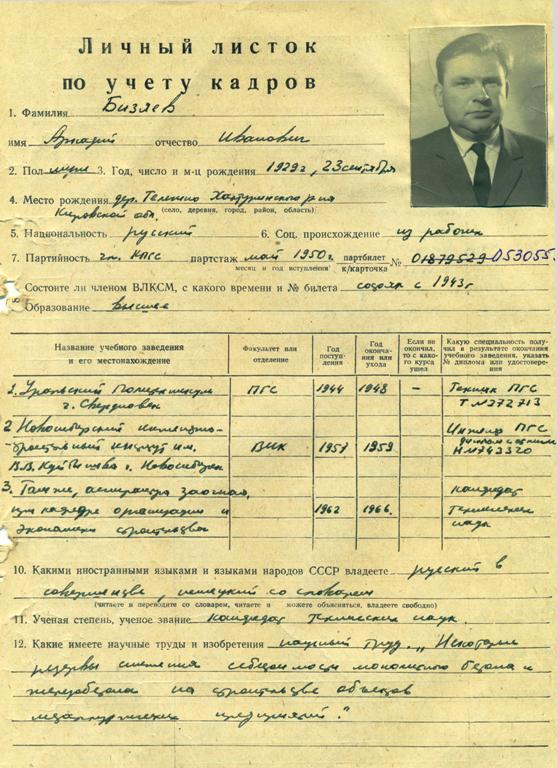 Личный листок
по учету кадров
1. Фамилия Бизяев
имя Аркадий отчество Иванович
2. Пол муж 3. Год, число и м-ц рождения 1929г, 23 сентября
4. Место рождения дер.
Кировской обл. (село, деревня, город, район, область)
5. Национальность русский 6. Соц. происхождение из рабочих
7. Партийность чл. КПСС партстаж май 1950г. партбилет № 01879529 053055.
месяц и год вступления к/карточка
Состоите ли членом ВЛКСМ, с какого времени и № билета состоял с 1943г
8. Образование высшее
Название учебного заведения и его местонахождение
Факультет или отделение
Год поступления
Год окончания или ухода
Если не окончил, то с какого курса ушел
Какую специальность получил в результате окончания учебного заведения, указать № диплома или удостоверения
1. Уральский Политехникум ПГС 1944 1948 — Техник ПГС
г. Свердловск Т №272713
2 Новосибирский инженерно- Инженер ПГС
-строительный институт им. ВиК 1957 1959 диплом
В.В. Куйбышева г. Новосибирск Н №743320
3. Там же, аспирантура заочная, кандидат
при кафедре организации и 1962 1966. технических
экономики строительства наук
10. Какими иностранными языками и языками народов СССР владеете русский в
совершенстве, немецкий со словарем
(читаете и переводите со словарем, читаете и можете объясняться, владеете свободно)
11. Ученая степень, ученое звание кандидат технических наук.
12. Какие имеете научные труды и изобретения научный труд „Некоторые
резервы снижения себестоимости монолитного бетона и
железобетона на строительстве объектов
металлургических предприятий."